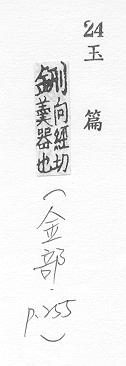 24 玉篇
鉶 向經切
羹器也
(金部 p.255)